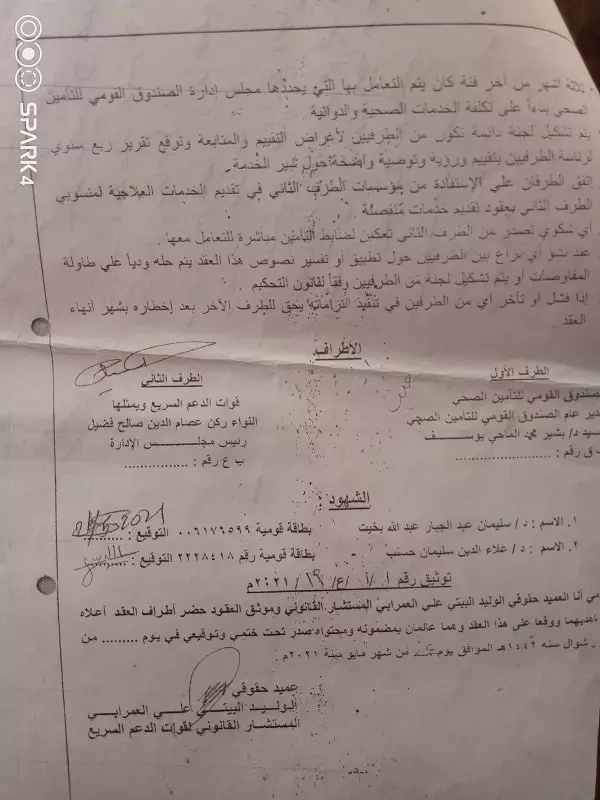 ثلاثة أشهر من آخر فئة كان يتم التعامل بها التي يحددها مجلس إدارة الصندوق القومي للتأمين
الصحي بناءاً على تكلفة الخدمات الصحية والدوائية
يتم تشكيل لجنة دائمة تكون من الطرفين لأغراض التقييم والمتابعة وترفع تقرير ربع سنوي
لرئاسة الطرفين بتقييم ورؤية وتوصية واضحة حول سير الخدمة
إتفق الطرفان علي الإستفادة من مؤسسات الطرف الثاني في تقديم الخدمات العلاجية لمنسوبي
الطرف الثاني بعقود تقديم خدمات منفصلة
أي شكوي تصدر من الطرف الثاني تعكس لضابط التأمين مباشرة للتعامل معها .
عند نشؤ أي نزاع بين الطرفين حول تطبيق أو تفسير نصوص هذا العقد يتم حله ودياً علي طاولة
المفاوضات أو يتم تشكيل لجنة من الطرفين وفقاً لقانون التحكيم
إذا فشل أو تأخر أي من الطرفين في تنفيذ التزاماته يحق للطرف الآخر بعد إخطاره بشهر أنهاء
العقد .
الأطراف
الطرف الأول
صندوق القومي للتأمين الصحي
دير عام الصندوق القومي للتأمين الصحي
سيد د/ بشير محمد الماحي يوســـف
ق رقم : ................
الطرف الثاني
قوات الدعم السريع ويمثلها
اللواء ركن عصام الدين صالح فضيل
رئيس مجلـــس الإدارة
ب ع رقم : ................
الشهود
١. الاسم : د / سليمان عبد الجبار عبد الله بخيت بطاقة قومية ٠٠٦١٧٦٥٩٩ التوقيع :
٢. الاسم : د / علاء الدين سليمان حسنب - بطاقة قومية رقم ٢٢٢٨٤١٨ التوقيع :
توثيق رقم أ. أ/ ع/ ١٩/ ٢٠٢١م
مي أنا العميد حقوقي الوليد البيتي علي العمرابي المستشار القانوني وموثق العقود حضر أطراف العقد أعلاه
اهديهما ووقعا على هذا العقد وهما عالمان بمضمونه ومحتواه صدر تحت ختمي وتوقيعي في يوم ......... من
شوال سنه ١٤٤٢هـ الموافق يوم من شهر مايو سنة ٢٠٢١م .
عميد حقوقي
الوليد البيتي علي العمرابي
المستشار القانوني لقوات الدعم السريع
SPARK4